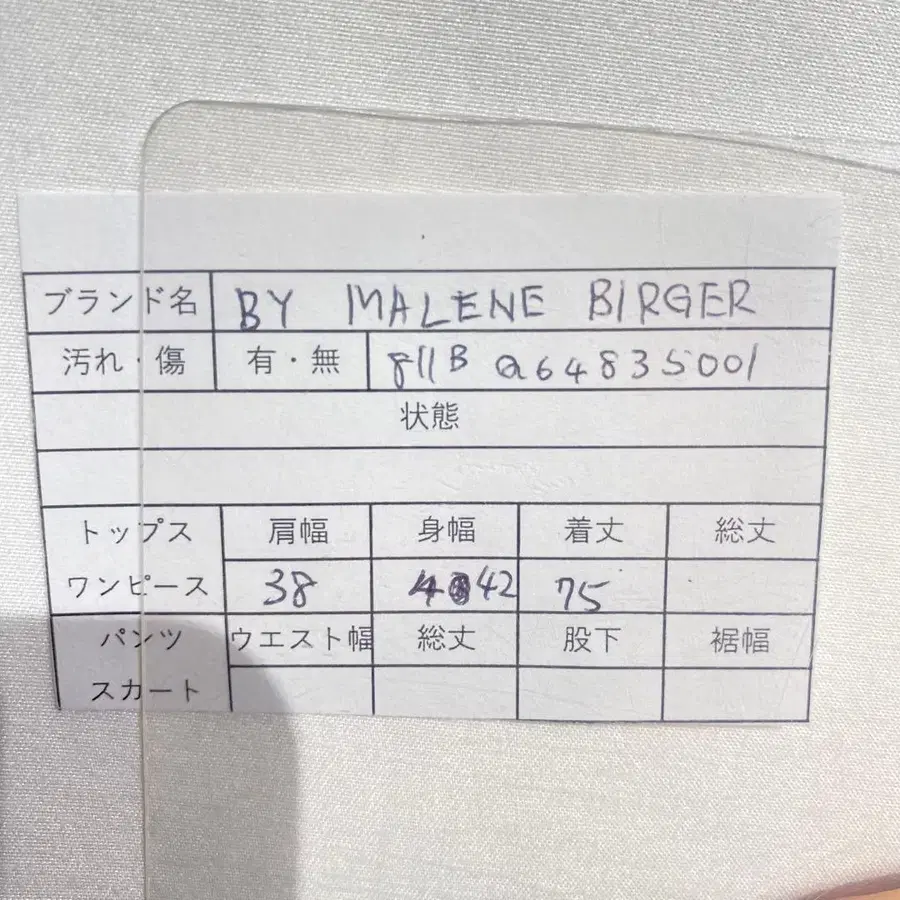 ブランド名 BY MALENE BIRGER
汚れ・傷 有・無 811B Q64835001
状態
トップス 肩幅 身幅 着丈 総丈
ワンピース 38 42 75
パンツ ウエスト幅 総丈 股下 裾幅
スカート